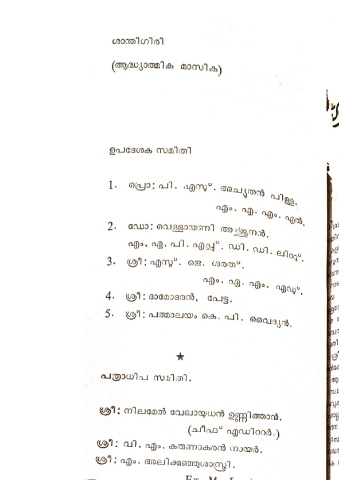 ശാന്തിഗിരി
(ആദ്ധ്യാത്മിക മാസിക)
ഉപദേശക സമിതി
1. പ്രൊ: പി. എസ്. അച്യുതൻ പിള്ള.
എം. എ. എം. എൽ.
2. ഡോ: വെള്ളായണി അർജ്ജുനൻ.
എം. എ. പി. എച്ച്. ഡി. ഡി. ലിറ്റ്.
3. ശ്രീ: എസ്. ജെ. ശരത്.
എം. ഏ. എം. എഡ്.
4. ശ്രീ: ദാമോദരൻ, പേട്ട.
5. ശ്രീ: പത്മാലയം കെ. പി. വൈദ്യൻ.
★
പത്രാധിപ സമിതി.
ശ്രീ: നിലമേൽ വേലായുധൻ ഉണ്ണിത്താൻ.
(ചീഫ് എഡിററർ.)
ശ്രീ: വി. എം. കരുണാകരൻ നായർ.
ശ്രീ: എം. അലിക്കുഞ്ഞുശാസ്ത്രി.